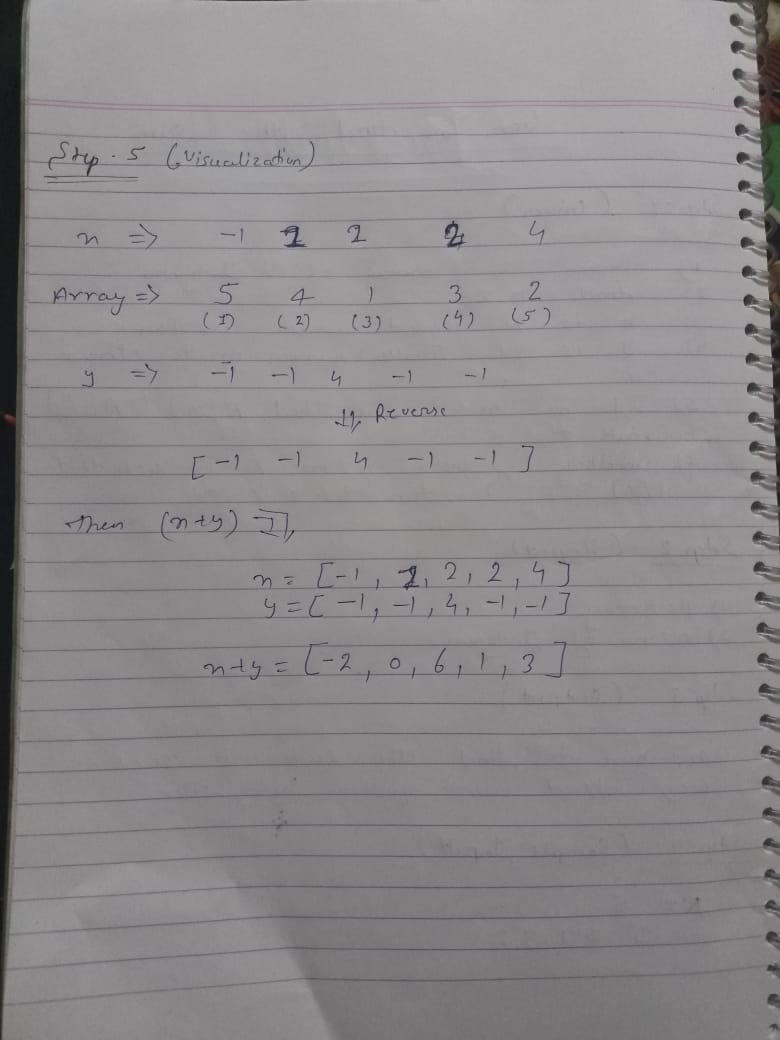 Step - 5 (Visualization)
x => -1 1 2 2 4
Array => 5 4 1 3 2
(1) (2) (3) (4) (5)
y => -1 -1 4 -1 -1
⇓ Reverse
[-1 -1 4 -1 -1]
Then (x+y) ⇒
x = [-1, 1, 2, 2, 4]
y = [-1, -1, 4, -1, -1]
x+y = [-2, 0, 6, 1, 3]